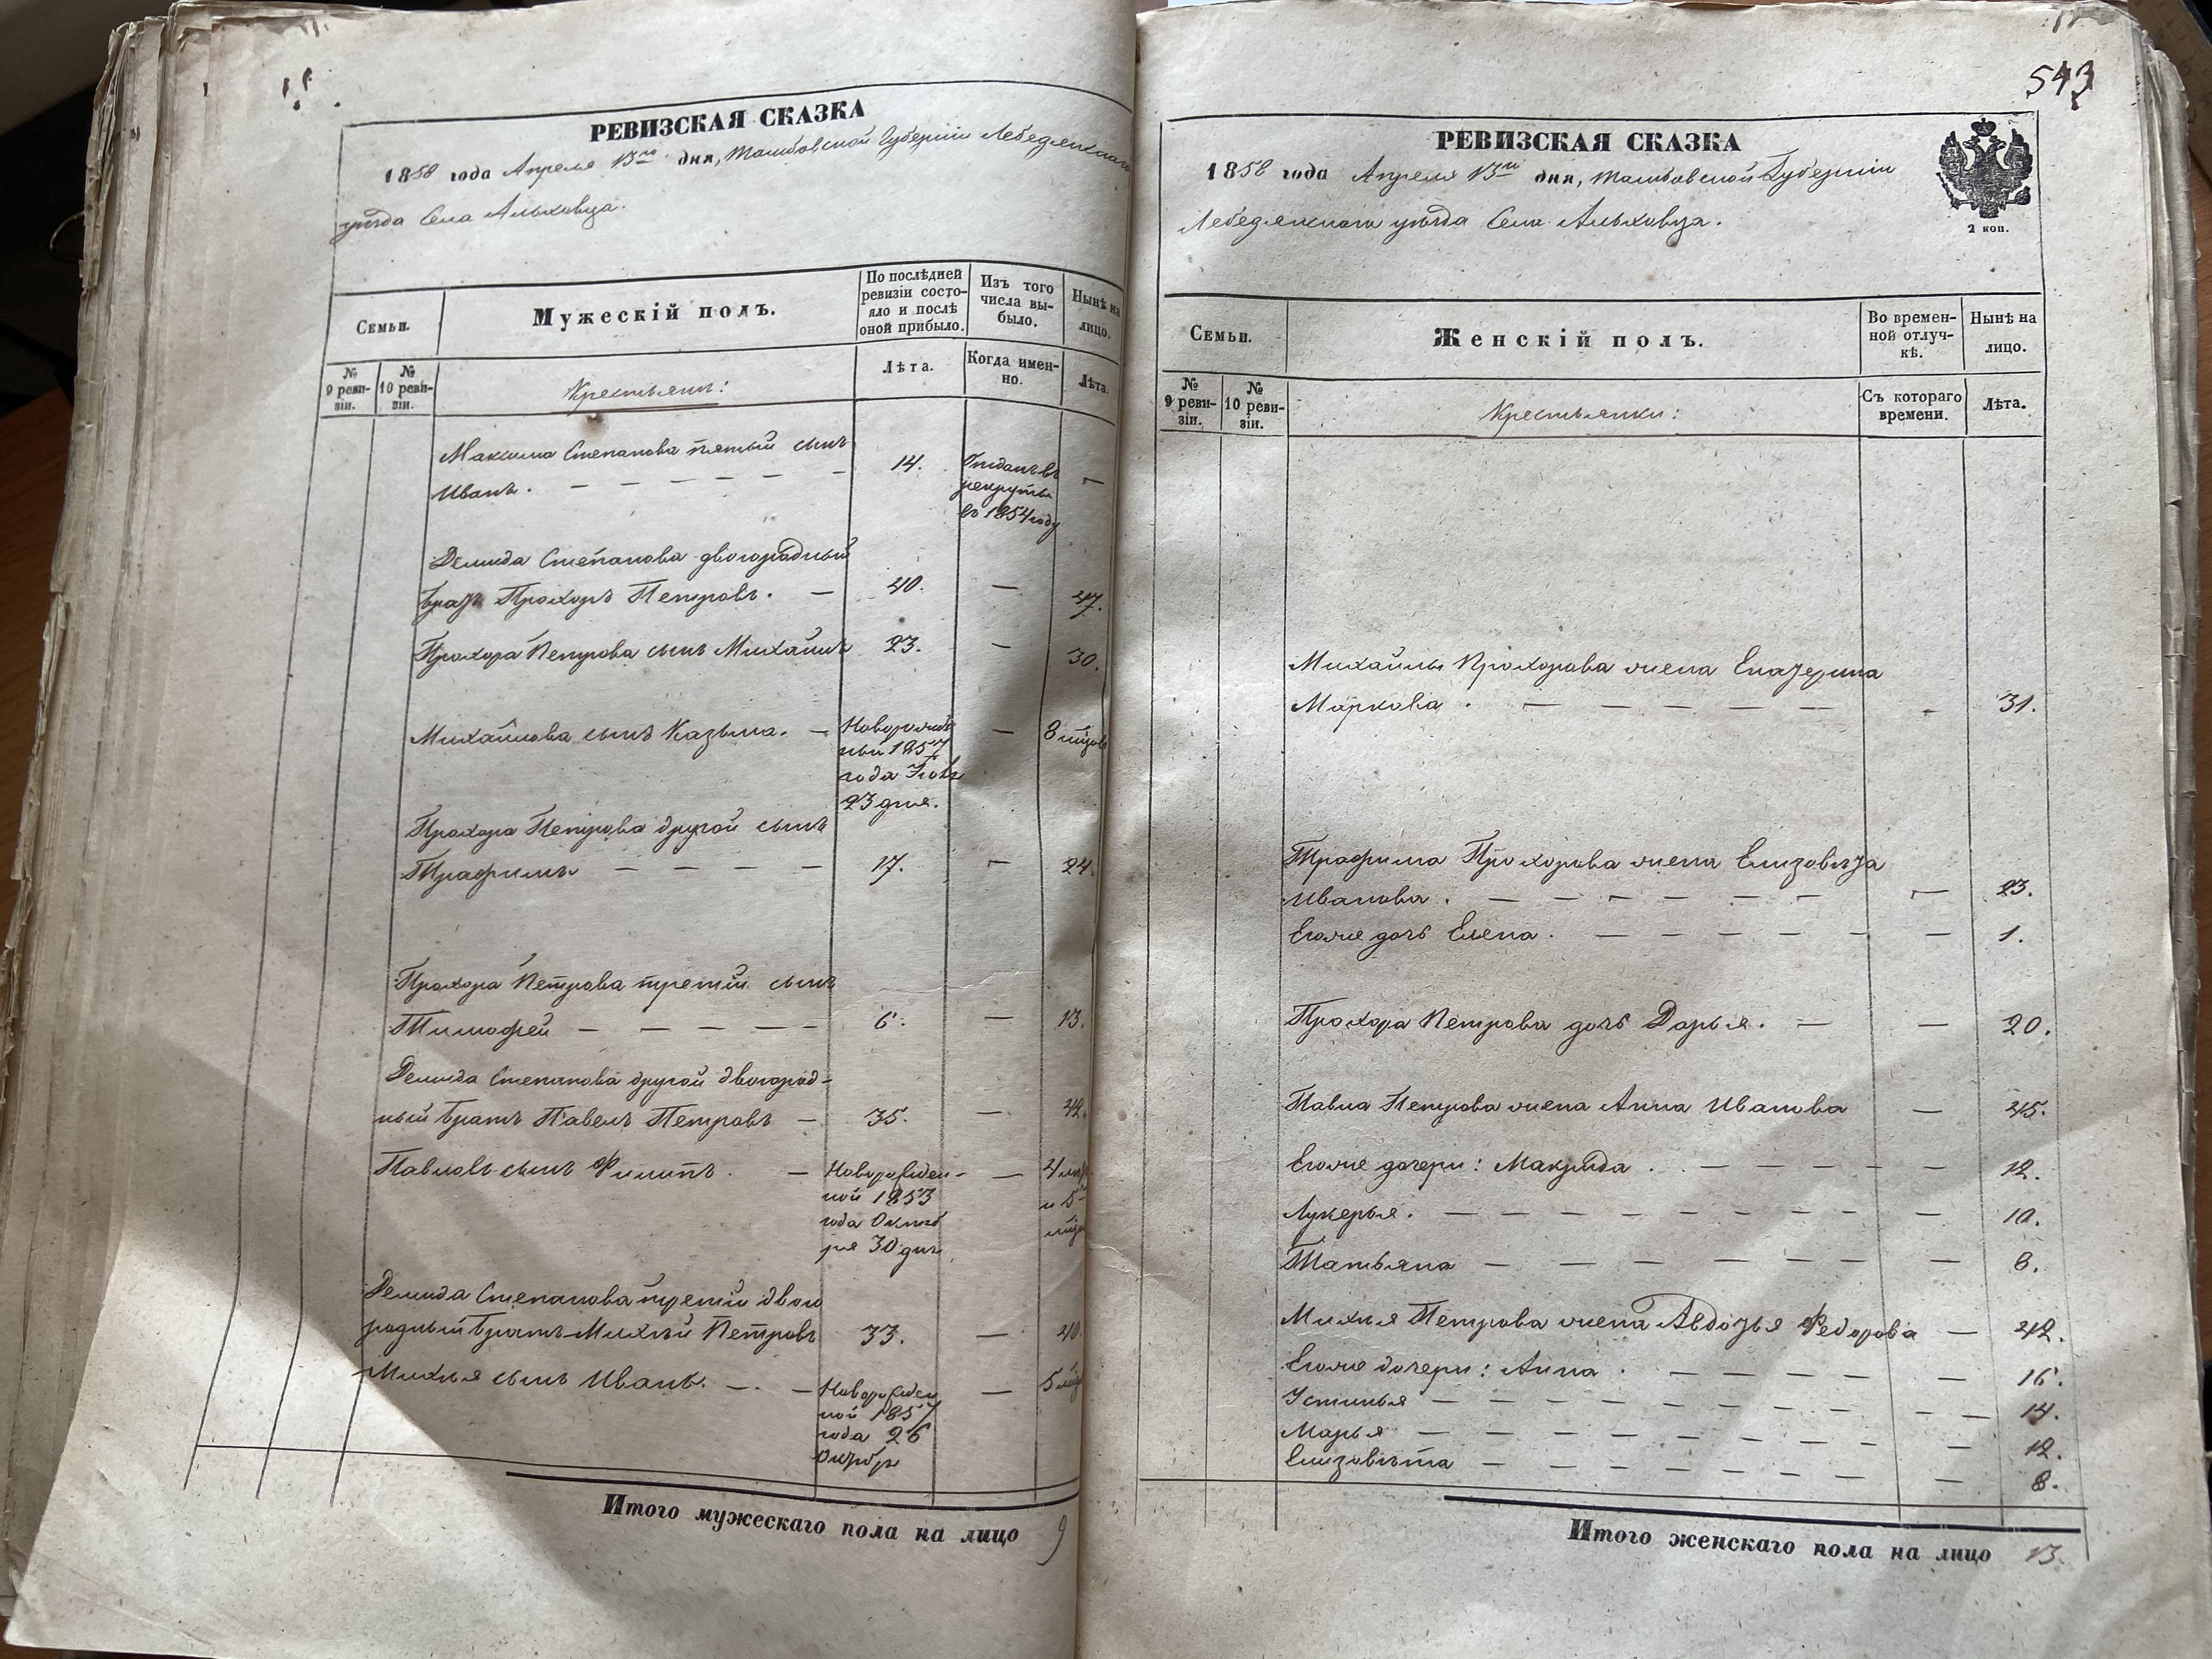 РЕВИЗСКАЯ СКАЗКА
1858 года Апреля 13го дня, Тамбовской Губерніи Лебедянскаго
уѣзда Села Альховца.
Семьи.
Мужескій полъ.
По послѣдней ревизіи состояло и послѣ оной прибыло.
Изъ того числа выбыло.
Нынѣ на лицо.
№ 9 ревизіи.
№ 10 ревизіи.
Крестьяне:
Лѣта.
Когда именно.
Лѣта.
Максима Степанова пятый сынъ
Иванъ. — — — — — — 14. Отданъ въ рекруты въ 1854 году —
Демида Степанова двоюродный
братъ Прохоръ Петровъ. — 40. — 47.
Прохора Петрова сынъ Михайла 23. — 30.
Михайлова сынъ Казьма. — Новорожденный 1857 года 23 дня. — 8 мѣсяцовъ
Прохора Петрова другой сынъ
Трафимъ — — — — 17. — 24.
Прохора Петрова третій сынъ
Тимофей — — — — — 6. — 13.
Демида Степанова другой двоюрод-
ный братъ Павелъ Петровъ — 35. — 42.
Павловъ сынъ Филипъ. — Новорожден-
ной 1853
года Октяб
ря 30 дня — 4 и 5
Демида Степанова третій двою
родный братъ Михѣй Петровъ 33. — 40.
Михѣя сынъ Иванъ. — . — Новорожден
ной 1857
года 26
Октябр — 5
Итого мужескаго пола на лицо 9
543
РЕВИЗСКАЯ СКАЗКА
1858 года Апреля 13го дня, Тамбовской Губерніи
Лебедянскаго уѣзда Села Альховца.
2 коп.
Семьи.
Женскій полъ.
Во временной отлучкѣ.
Нынѣ на лицо.
№ 9 ревизіи.
№ 10 ревизіи.
Крестьянки:
Съ котораго времени.
Лѣта.
Михайлы Прохорова жена Екатерина
Маркова . — — — — — — 31.
Трафима Прохорова жена Елизовѣта
Иванова . — — — — — — — 23.
Егоже дочь Елена . — — — — — — 1.
Прохора Петрова дочь Дарья. — — 20.
Павла Петрова жена Анна Иванова — 45.
Егоже дочери: Макрида . — — — — — 12.
Лукерья. — — — — — — — — 10.
Татьяна — — — — — — — — 8.
Михѣя Петрова жена Авдотья Федорова — 42.
Егоже дочери: Анна . — — — — — 16.
Устинья — — — — — — — — — 14.
Марья — — — — — — — — 12.
Елизовѣта — — — — — — — — 8.
Итого женскаго пола на лицо 13.